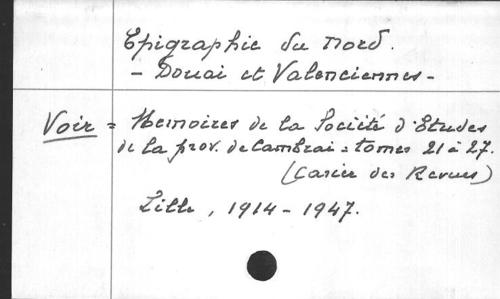 Epigraphie du Nord.
- Douai et Valenciennes -
Voir = Memoires de la Société d'Etudes
de la prov. de Cambrai = tomes 21 à 27.
(Casier des Revues)
Lille, 1914-1947.